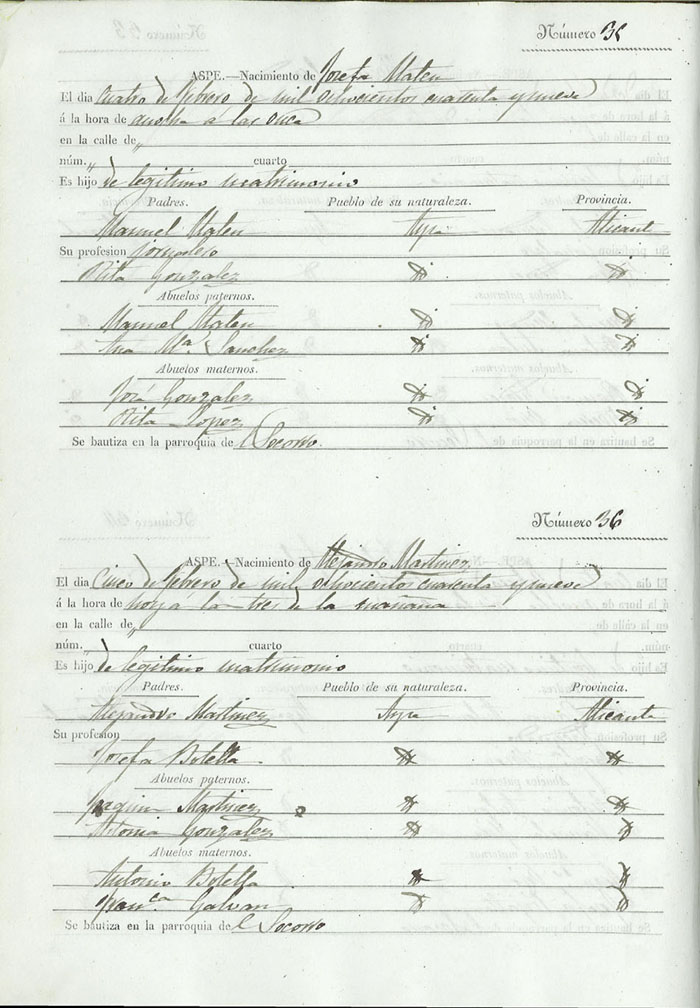 Número 35
ASPE.—Nacimiento de Josefa Mateu
El dia Cuatro de Febrero de mil ochocientos cuarenta y nueve
á la hora de anoche a las once
en la calle de „
núm. „ cuarto
Es hijo de legitimo matrimonio
Padres. Pueblo de su naturaleza. Provincia.
Manuel Mateu Aspe Alicante
Su profesion jornalero
Rita Gonzalez id id
Abuelos paternos.
Manuel Mateu id id
Ana Mª Sanchez id id
Abuelos maternos.
José Gonzalez id id
Rita Lopez id id
Se bautiza en la parroquia del Socorro
Número 36
ASPE.—Nacimiento de Alejandro Martinez
El dia Cinco de Febrero de mil ochocientos cuarenta y nueve
á la hora de hoy á las tres de la mañana
en la calle de „
núm. cuarto
Es hijo de legitimo matrimonio
Padres. Pueblo de su naturaleza. Provincia.
Alejandro Martinez Aspe Alicante
Su profesion
Josefa Botella id id
Abuelos paternos.
Joaquin Martinez id id
Antonia Gonzalez id id
Abuelos maternos.
Antonio Botella id id
Franca Galvan id id
Se bautiza en la parroquia del Socorro